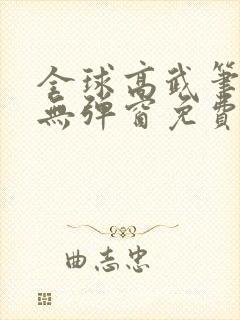 全球高武筆
無彈窗免費
曲志忠